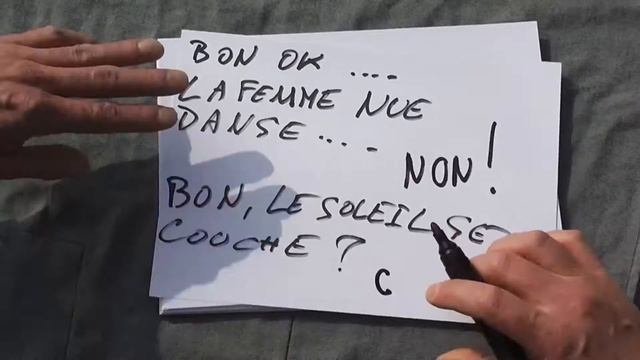 BON OK ....
LA FEMME NUE
DANSE ....
NON !
BON, LE SOLEIL SE
COUCHE ?
C